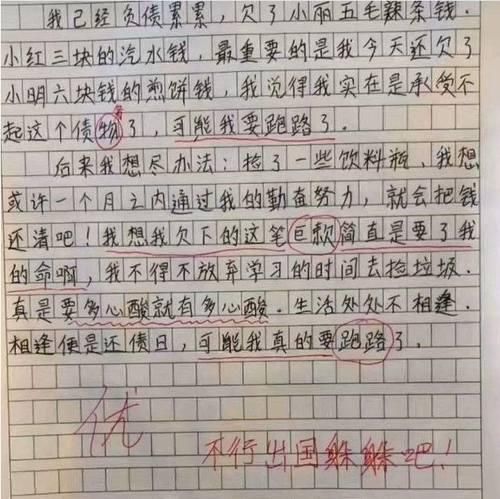 我已经负债累累，欠了小丽五毛辣条钱．
小红三块的汽水钱，最重要的是我今天还欠了
小明六块钱的煎饼钱，我觉得我实在是承受不
务
起这个债物了，可能我要跑路了．
后来我想尽办法：捡了一些饮料瓶，我想
或许一个月之内通过我的勤奋努力，就会把钱
还清吧！我想我欠下的这笔巨款简直是要了我
的命啊，我不得不放弃学习的时间去捡垃圾．
真是要多心酸就有多心酸．生活处处不相逢
相逢便是还债日，可能我真的要跑路了．
优
不行出国躲躲吧！